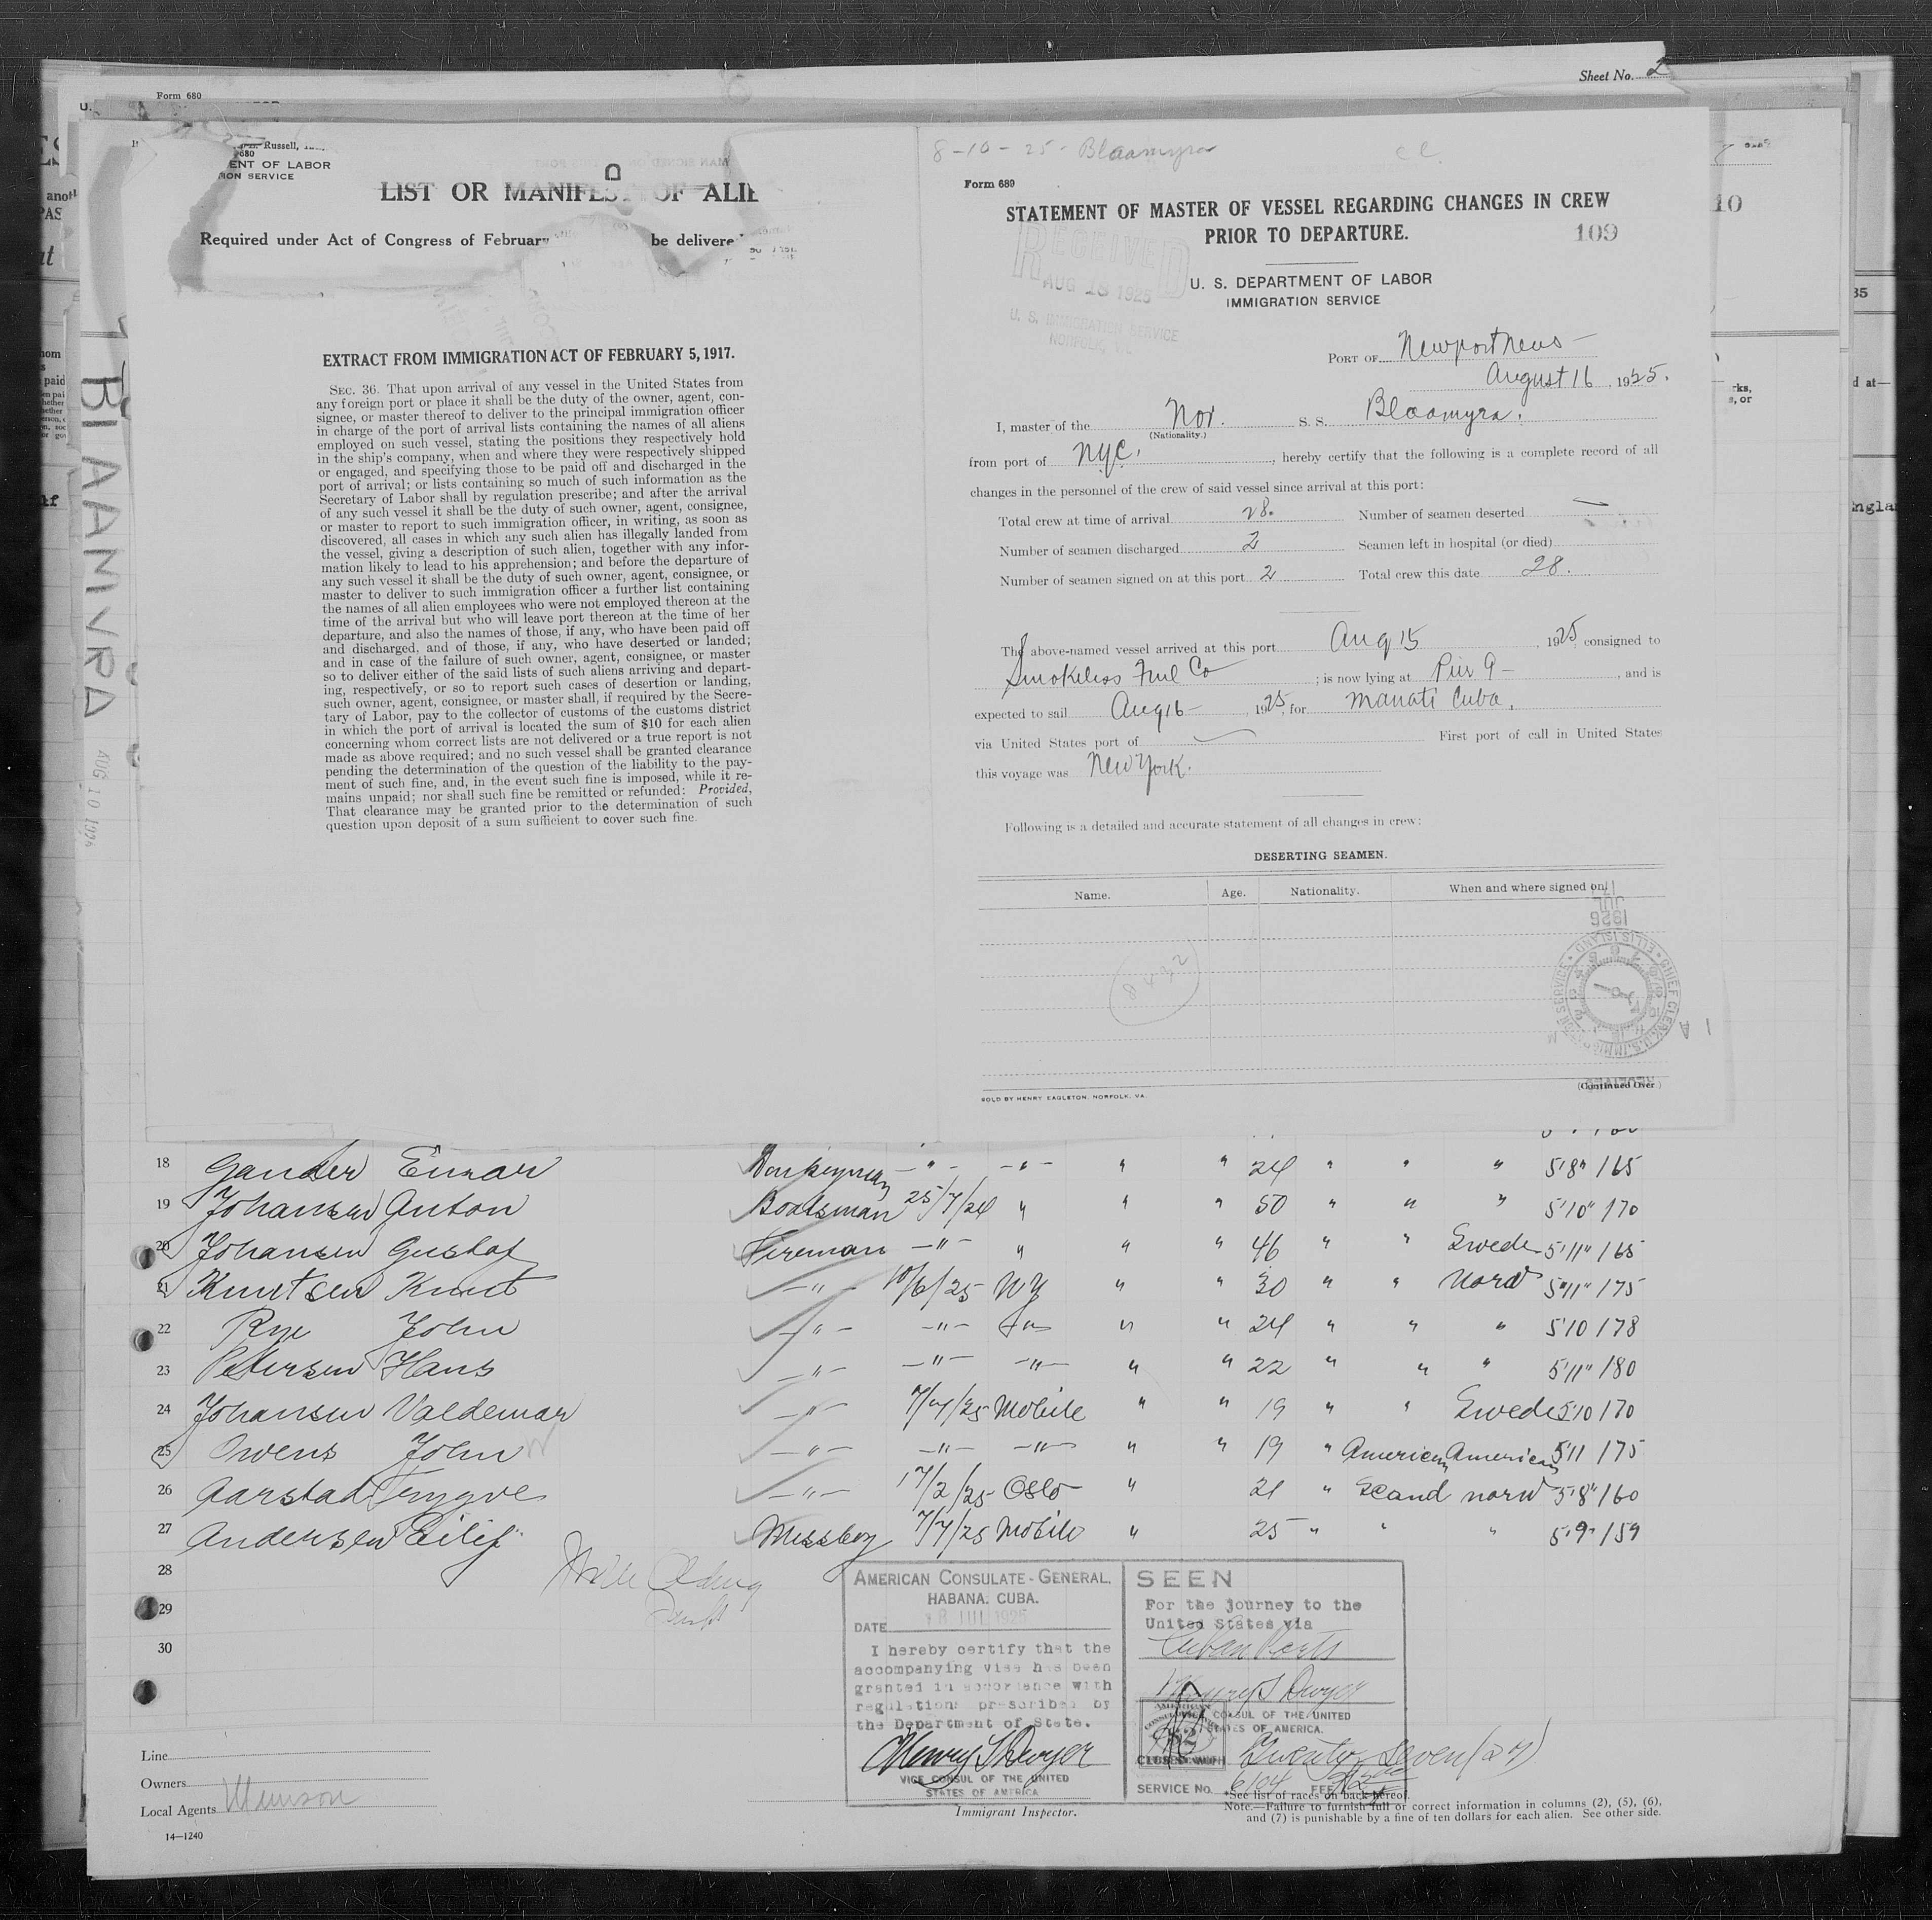 Sheet No. 2
Form 680
Russell,
680
ENT OF LABOR
ION SERVICE
LIST OR MANIFEST OF ALIE
Required under Act of Congress of February be delivere
EXTRACT FROM IMMIGRATION ACT OF FEBRUARY 5, 1917.
SEC. 36. That upon arrival of any vessel in the United States from
any foreign port or place it shall be the duty of the owner, agent, con-
signee, or master thereof to deliver to the principal immigration officer
in charge of the port of arrival lists containing the names of all aliens
employed on such vessel, stating the positions they respectively hold
in the ship's company, when and where they were respectively shipped
or engaged, and specifying those to be paid off and discharged in the
port of arrival; or lists containing so much of such information as the
Secretary of Labor shall by regulation prescribe; and after the arrival
of any such vessel it shall be the duty of such owner, agent, consignee,
or master to report to such immigration officer, in writing, as soon as
discovered, all cases in which any such alien has illegally landed from
the vessel, giving a description of such alien, together with any infor-
mation likely to lead to his apprehension; and before the departure of
any such vessel it shall be the duty of such owner, agent, consignee, or
master to deliver to such immigration officer a further list containing
the names of all alien employees who were not employed thereon at the
time of the arrival but who will leave port thereon at the time of her
departure, and also the names of those, if any, who have been paid off
and discharged, and of those, if any, who have deserted or landed;
and in case of the failure of such owner, agent, consignee, or master
so to deliver either of the said lists of such aliens arriving and depart-
ing, respectively, or so to report such cases of desertion or landing,
such owner, agent, consignee, or master shall, if required by the Secre-
tary of Labor, pay to the collector of customs of the customs district
in which the port of arrival is located the sum of $10 for each alien
concerning whom correct lists are not delivered or a true report is not
made as above required; and no such vessel shall be granted clearance
pending the determination of the question of the liability to the pay-
ment of such fine, and, in the event such fine is imposed, while it re-
mains unpaid; nor shall such fine be remitted or refunded: Provided,
That clearance may be granted prior to the determination of such
question upon deposit of a sum sufficient to cover such fine.
BLAAMYRA
AUG 10 192
8-10-25- Blaamyra
Form 689
STATEMENT OF MASTER OF VESSEL REGARDING CHANGES IN CREW
PRIOR TO DEPARTURE.
109
RECEIVED
AUG 18 1925
U. S. IMMIGRATION SERVICE
NORFOLK, VA.
U. S. DEPARTMENT OF LABOR
IMMIGRATION SERVICE
PORT OF Newport News
August 16, 1925.
I, master of the Nor. S. S. Blaamyra.
(Nationality.)
from port of NYC, hereby certify that the following is a complete record of all
changes in the personnel of the crew of said vessel since arrival at this port:
Total crew at time of arrival 28. Number of seamen deserted —
Number of seamen discharged 2 Seamen left in hospital (or died)
Number of seamen signed on at this port 2 Total crew this date 28.
The above-named vessel arrived at this port Aug 15, 1925, consigned to
Smokeless Fuel Co ; is now lying at Pier 9 — , and is
expected to sail Aug 16, 1925, for Manati Cuba.
via United States port of — First port of call in United States
this voyage was New York.
Following is a detailed and accurate statement of all changes in crew:
DESERTING SEAMEN.
Name. Age. Nationality. When and where signed on.
8432
(Continued Over.)
SOLD BY HENRY EAGLETON, NORFOLK, VA.
18 Gander Einar Donkeyman -"- -"- " " 24 " " " 5'8" 165
19 Johansen Anton Boatsman 25/7/24 " " " 50 " " " 5'10" 170
20 Johansen Gustaf Fireman -"- " " " 46 " " Swede 5'11" 165
21 Knutsen Knut -"- 10/6/25 NY " " 30 " " Norw 5'11" 175
22 Rye John -"- -"- " " 24 " " " 5'10 178
23 Petersen Hans -"- -"- -"- " " 22 " " " 5'11" 180
24 Johansen Valdemar -"- 7/7/25 Mobile " " 19 " " Swede 5'10 170
25 Owens John -"- -"- -"- " " 19 " American American 5'11 175
26 Aarstad Trygve -"- 17/2/25 Oslo " 21 " Scand norw 5'8" 160
27 Andersen Eilif Messboy 7/7/25 Mobile " 25 " " " 5'9" 159
28
29
30
AMERICAN CONSULATE-GENERAL,
HABANA, CUBA.
DATE 18 JUL 1925
I hereby certify that the
accompanying vise has been
granted in accordance with
regulations prescribed by
the Department of State.
Henry S Dwyer
VICE CONSUL OF THE UNITED
STATES OF AMERICA
SEEN
For the journey to the
United States via
Cuban Ports
Henry S Dwyer
CONSUL OF THE UNITED
STATES OF AMERICA.
Twenty Seven (27)
SERVICE No. 6104 FEE
Line
Owners
Local Agents Munson
14—1240
Immigrant Inspector.
*See list of races on back hereof.
Note.—Failure to furnish full or correct information in columns (2), (5), (6),
and (7) is punishable by a fine of ten dollars for each alien. See other side.